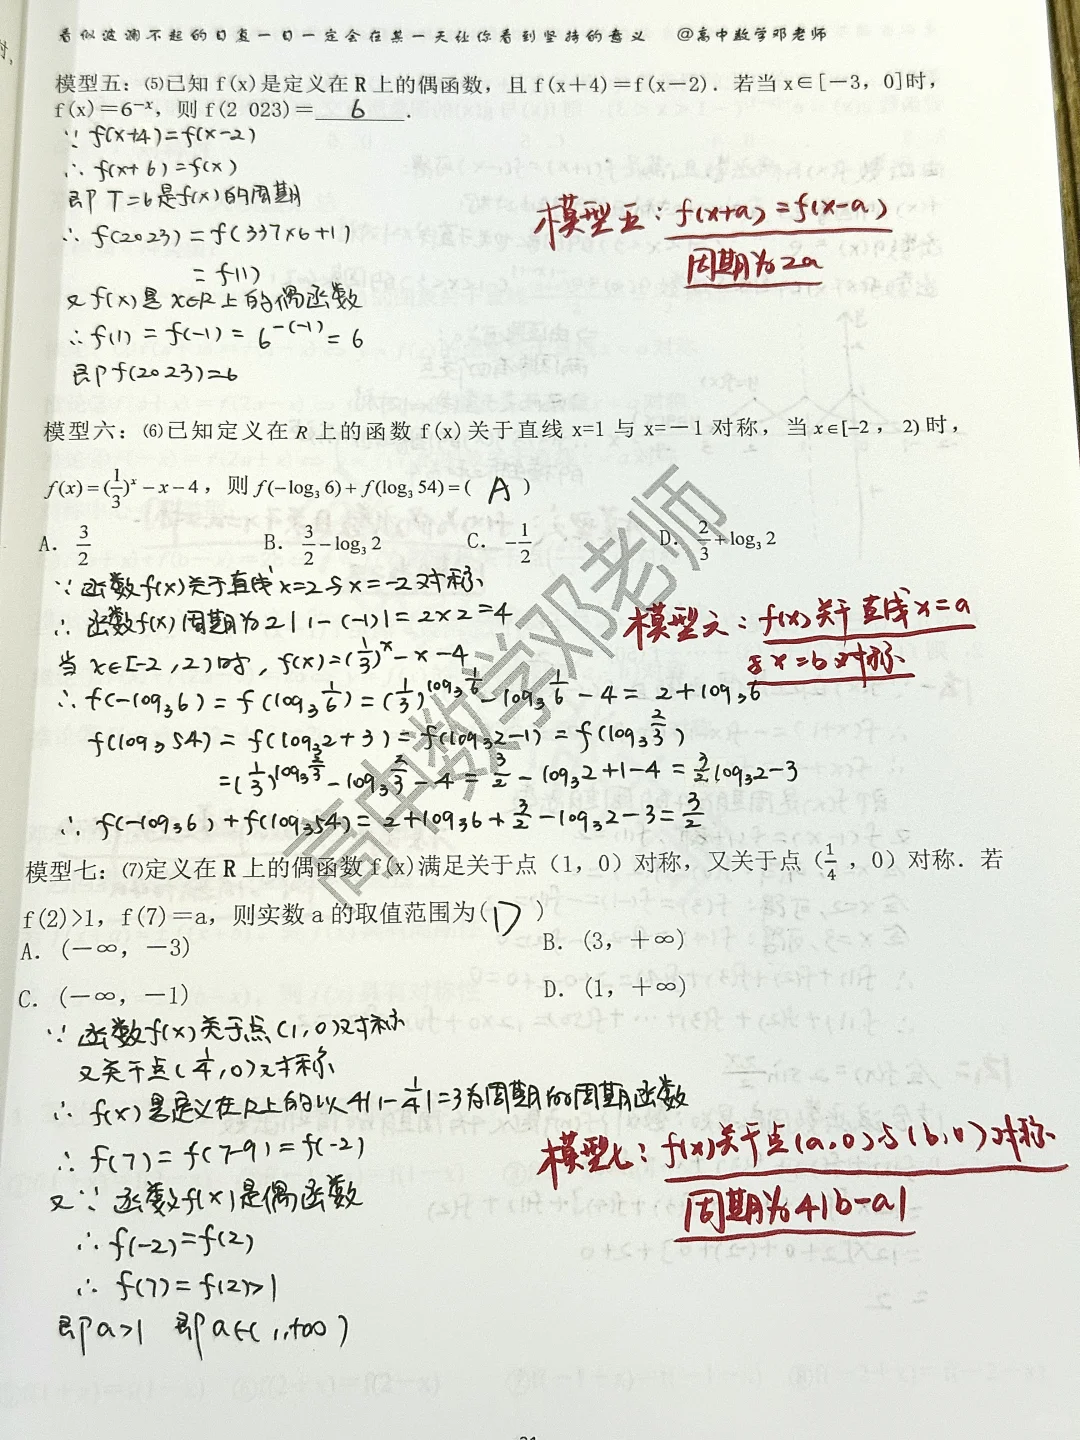 看似波澜不起的日复一日一定会在某一天让你看到坚持的意义 @高中数学邓老师
模型五：⑸已知 f(x)是定义在 R 上的偶函数，且 f(x+4)=f(x-2)．若当 x∈[-3，0]时，
f(x)=6⁻ˣ，则 f(2 023)=6．
∵ f(x+4)=f(x-2)
∴ f(x+6)=f(x)
即 T=6是f(x)的周期
∴ f(2023)=f(337×6+1)
=f(1)
又 f(x)是 x∈R 上的偶函数
∴ f(1)=f(-1)=6^{-(-1)}=6
即f(2023)=6
模型五：f(x+a)=f(x-a)
周期为2a
模型六：⑹已知定义在 R 上的函数 f(x)关于直线 x=1 与 x=-1 对称，当 x∈[-2，2)时，
f(x)=(1/3)^x-x-4，则 f(-log₃6)+f(log₃54)=( A )
A．3/2 B．3/2-log₃2 C．-1/2 D．2/3+log₃2
∵ 函数f(x)关于直线x=2与x=-2对称
∴ 函数f(x)周期为2|1-(-1)|=2×2=4
当 x∈[-2,2)时，f(x)=(1/3)^x-x-4
∴ f(-log₃6)=f(log₃1/6)=(1/3)^{log₃1/6}-log₃1/6-4=2+log₃6
f(log₃54)=f(log₃2+3)=f(log₃2-1)=f(log₃2/3)
=(1/3)^{log₃2/3}-log₃2/3-4=3/2-log₃2+1-4=3/2log₃2-3
∴ f(-log₃6)+f(log₃54)=2+log₃6+3/2-log₃2-3=3/2
模型六：f(x)关于直线x=a
与x=b对称
高中数学邓老师
模型七：⑺定义在 R 上的偶函数 f(x)满足关于点（1，0）对称，又关于点（1/4，0）对称．若
f(2)>1，f(7)=a，则实数 a 的取值范围为( D )
A．(-∞，-3) B．(3，+∞)
C．(-∞，-1) D．(1，+∞)
∵ 函数f(x)关于点(1,0)对称
又关于点(1/4,0)对称
∴ f(x)是定义在R上的以4|1-1/4|=3为周期的周期函数
∴ f(7)=f(7-9)=f(-2)
又∵ 函数f(x)是偶函数
∴ f(-2)=f(2)
∴ f(7)=f(2)>1
即a>1 即a∈(1,+∞)
模型七：f(x)关于点(a,0)与(b,0)对称
周期为4|b-a|